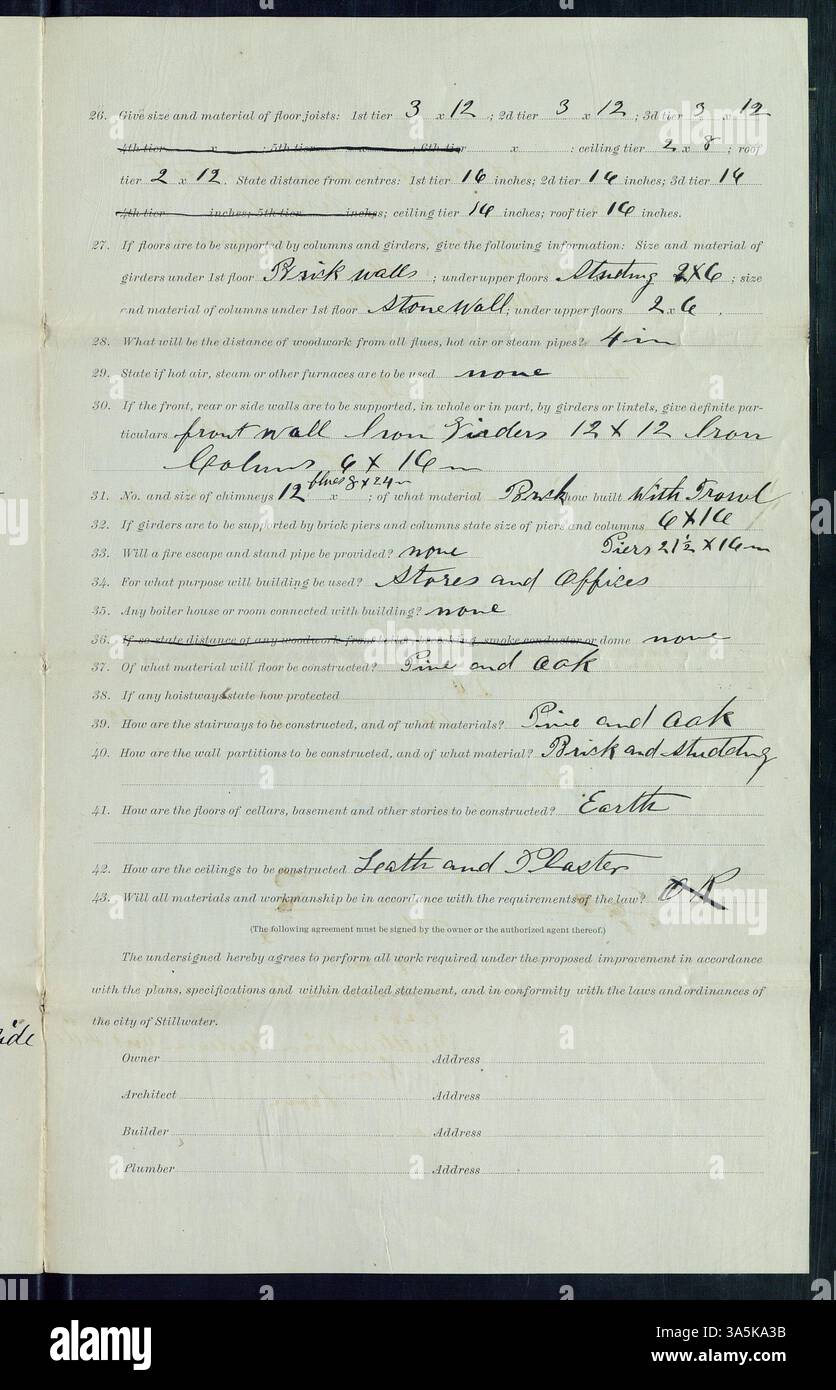 26. Give size and material of floor joists: 1st tier 3 x 12 ; 2d tier 3 x 12 ; 3d tier 3 x 12
4th tier x ; 5th tier x ; 6th tier x : ceiling tier 2 x 8 ; roof
tier 2 x 12. State distance from centres: 1st tier 16 inches; 2d tier 16 inches; 3d tier 16
4th tier inches; 5th tier inches; ceiling tier 16 inches; roof tier 16 inches.
27. If floors are to be supported by columns and girders, give the following information: Size and material of
girders under 1st floor Brick walls ; under upper floors Studing 2x6 ; size
and material of columns under 1st floor Stone Wall ; under upper floors 2 x 6 .
28. What will be the distance of woodwork from all flues, hot air or steam pipes? 4 in
29. State if hot air, steam or other furnaces are to be used none
30. If the front, rear or side walls are to be supported, in whole or in part, by girders or lintels, give definite par-
ticulars front wall Iron Girders 12 x 12 Iron
Colums 6 x 16 in
31. No. and size of chimneys 12 flues 8 x 24 in x ; of what material Brick how built With Trowl
32. If girders are to be supported by brick piers and columns state size of piers and columns 6 x 16
33. Will a fire escape and stand pipe be provided? none Piers 21½ x 16 in
34. For what purpose will building be used? Stores and Offices
35. Any boiler house or room connected with building? none
36. If so state distance of any woodwork from boiler, breeching, smoke conductor or dome none
37. Of what material will floor be constructed? Pine and Oak
38. If any hoistways state how protected
39. How are the stairways to be constructed, and of what materials? Pine and Oak
40. How are the wall partitions to be constructed, and of what material? Brick and studding
41. How are the floors of cellars, basement and other stories to be constructed? Earth
42. How are the ceilings to be constructed Leath and Plaster
43. Will all materials and workmanship be in accordance with the requirements of the law?
(The following agreement must be signed by the owner or the authorized agent thereof.)
The undersigned hereby agrees to perform all work required under the proposed improvement in accordance
with the plans, specifications and within detailed statement, and in conformity with the laws and ordinances of
the city of Stillwater.
Owner Address
Architect Address
Builder Address
Plumber Address
alamy
Image ID: 3A5KA3B
www.alamy.com